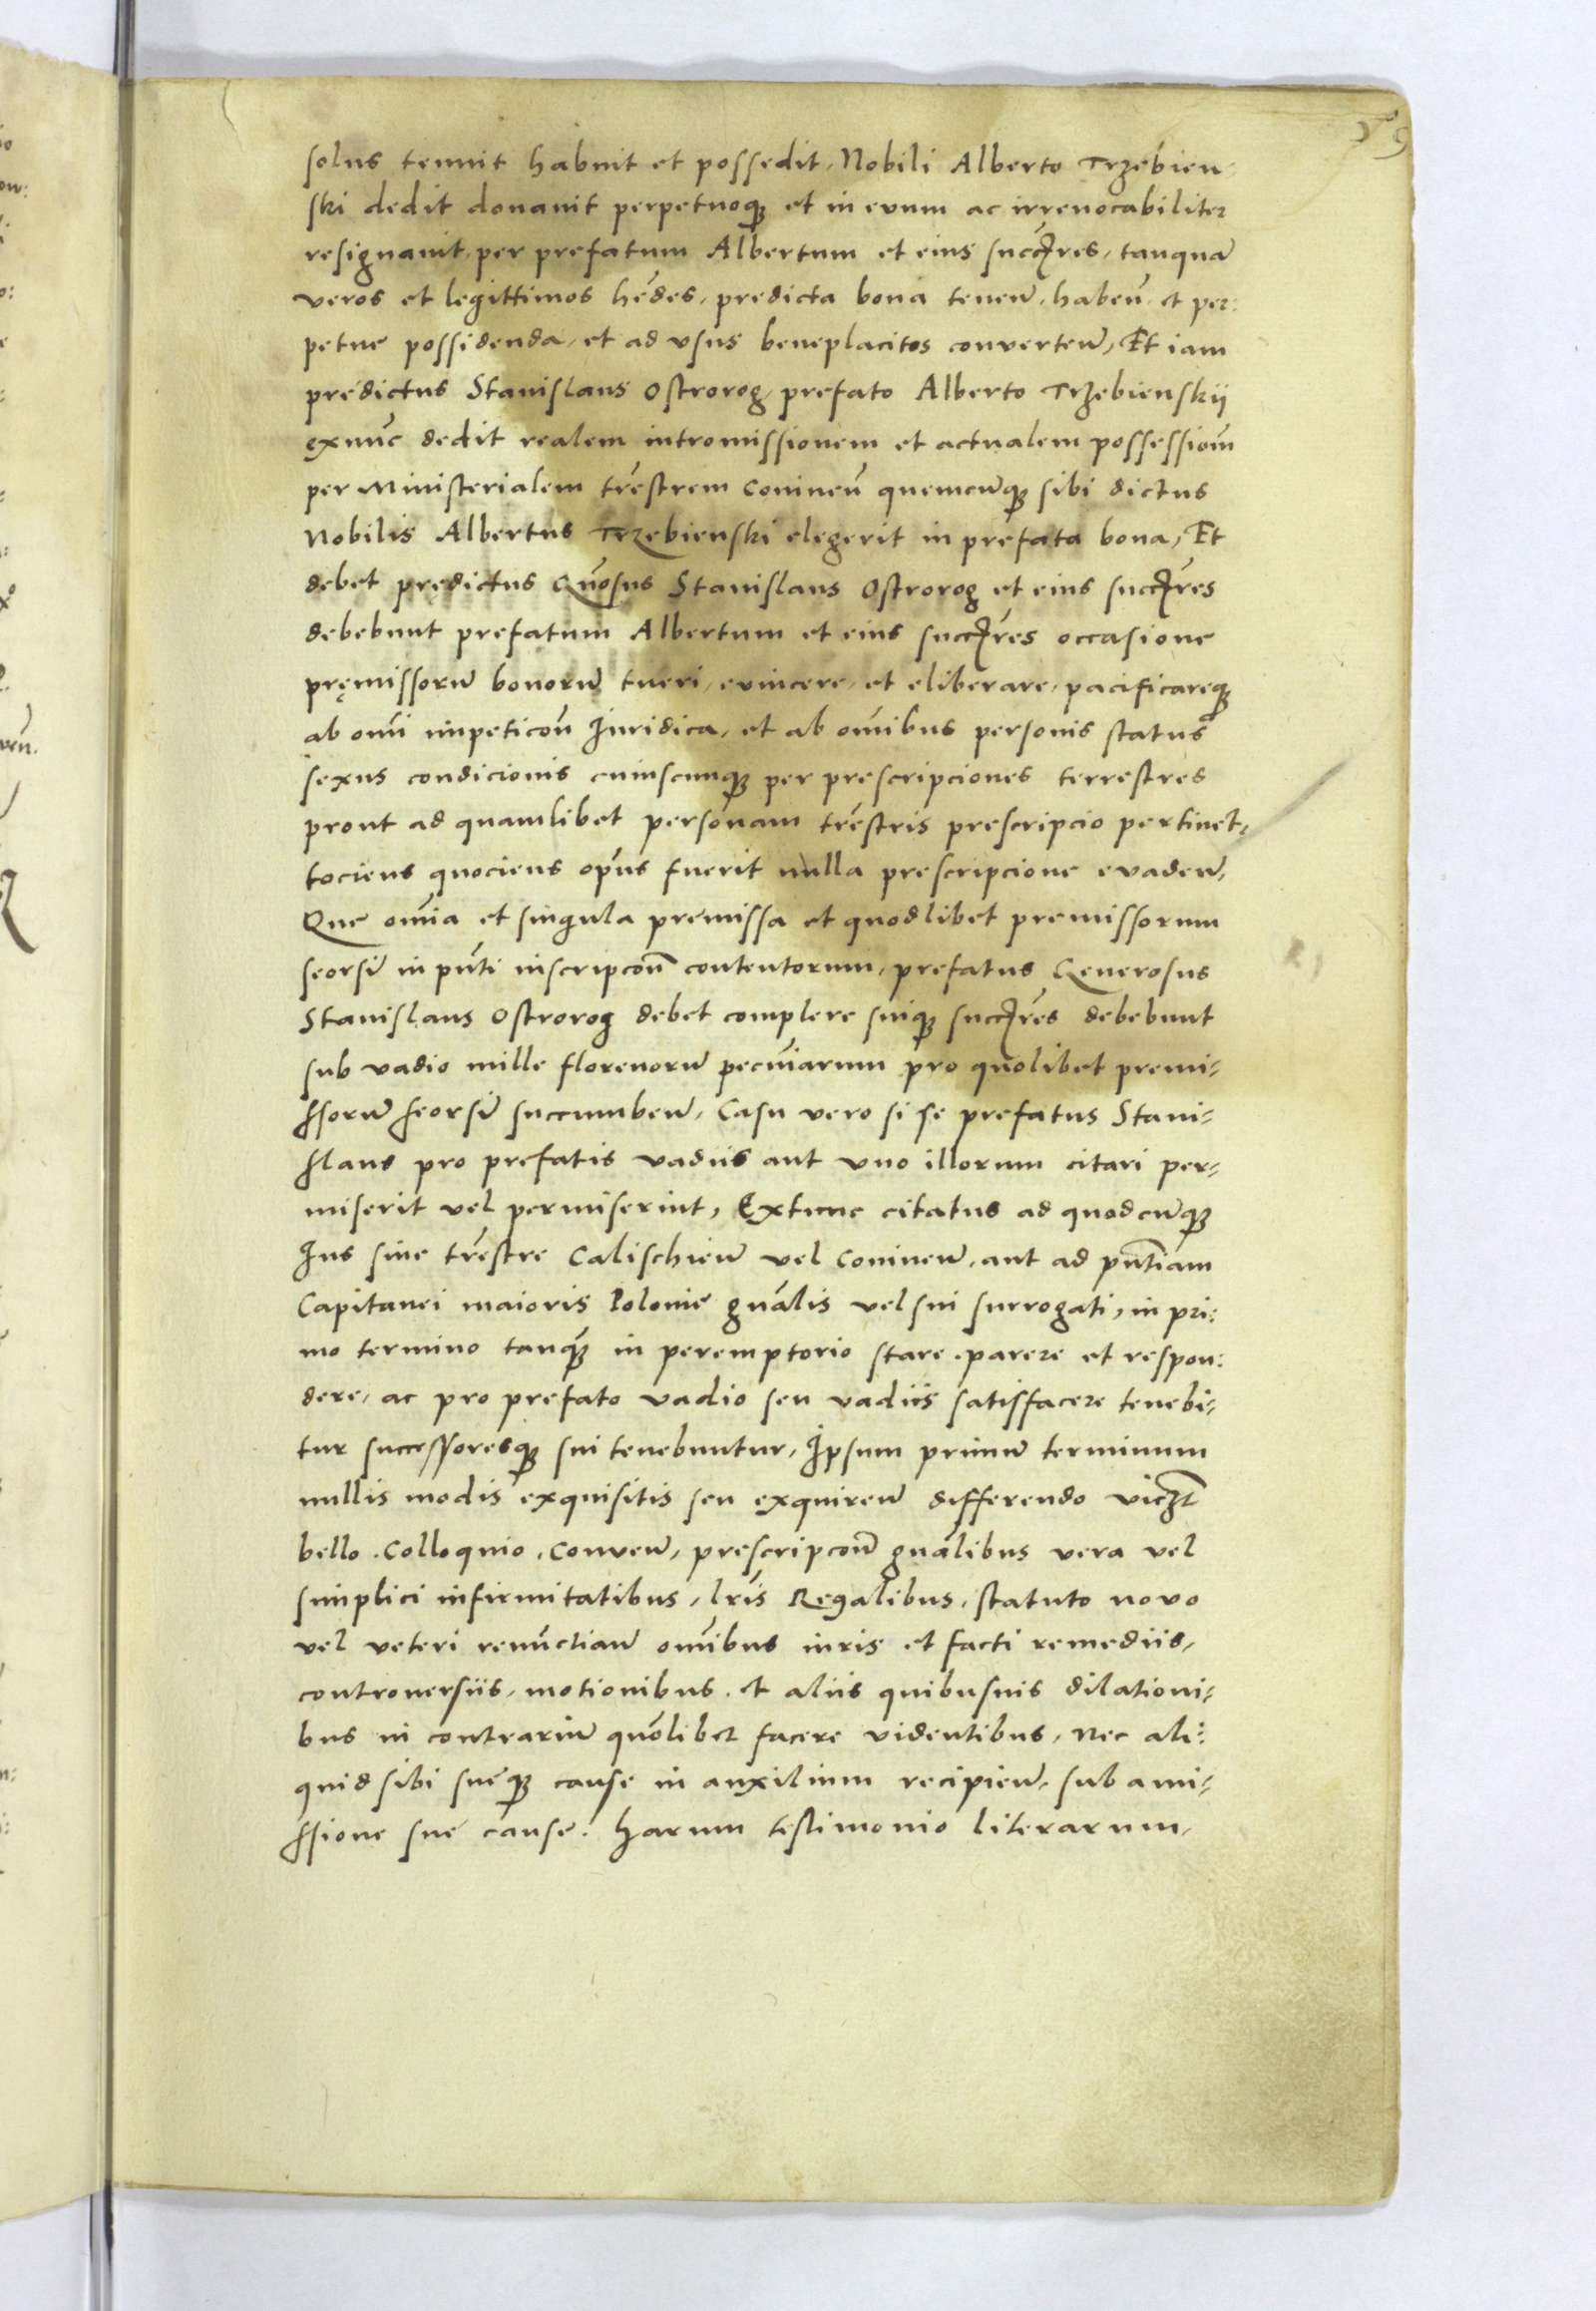 solus tenuit habuit et possedit, Nobili Alberto Trzebien-
ski dedit donavit perpetuoq3 et in evum ac irrevocabiliter
resignavit, per prefatum Albertum et eius succ̃res, tanquā
veros et legittimos hẽdes, predicta bona teneñ, habeñ et per-
petue possidenda, et ad vsus beneplacitos converteñ, Et iam
predictus Stanislaus Ostrorog, prefato Alberto Trzebienskij
exnūc dedit realem intromissionem et actualem possessioñ
per Ministerialem trẽstrem Conineñ quemcūq3 sibi dictus
Nobilis Albertus Trzebienski elegerit in prefata bona, Et
debet predictus Gñosus Stanislaus Ostrorog et eius succ̃res
debebunt prefatum Albertum et eius succ̃res occasione
pręmissorū bonorū tueri, evincere, et eliberare, pacificareq3
ab omī impeticoñ Iuridica, et ab omībus personis status
sexus condicionis cuiuscunq3 per prescripciones terrestres
prout ad quamlibet personam trẽstris prescripcio pertinet,
tociens quociens opus fuerit nulla prescripcione evadeñ,
Que omīa et singula premissa et quodlibet premissorum
seorsī in pñti inscripcoñ contentorum, prefatus Generosus
Stanislaus Ostrorog debet complere suiq3 succ̃res debebunt
sub vadio mille florenorū pecuniarum pro quolibet premi-
ssorū seorsī succumbeñ, Casu vero si se prefatus Stani-
slaus pro prefatis vadiis aut vno illorum citari per-
miserit vel permiserint, Extunc citatus ad quodcūq3
Ius sive trẽstre Calischieñ vel Conineñ, aut ad pñtiam
Capitanei maioris Polonie gñalis vel sui surrogati, in pri-
mo termino tanq3 in peremptorio stare, parere et respon-
dere, ac pro prefato vadio seu vadiis satisfacere tenebi-
tur successoresq3 sui tenebuntur, Ipsum primū terminum
nullis modis exquisitis seu exquireñ differendo vicz̃t
bello, Colloquio, Conveñ, prescripcoñ gñalibus vera vel
simplici infirmitatibus, lr̃is Regalibus, statuto novo
vel veteri renūctiañ omībus iuris et facti remediis,
controversiis, motionibus, et aliis quibusuis dilationi-
bus in contrariū quõlibet facere videntibus, Nec ali-
quid sibi sueq3 cause in auxilium recipieñ, sub ami-
ssione sue cause. Harum testimonio literarum,